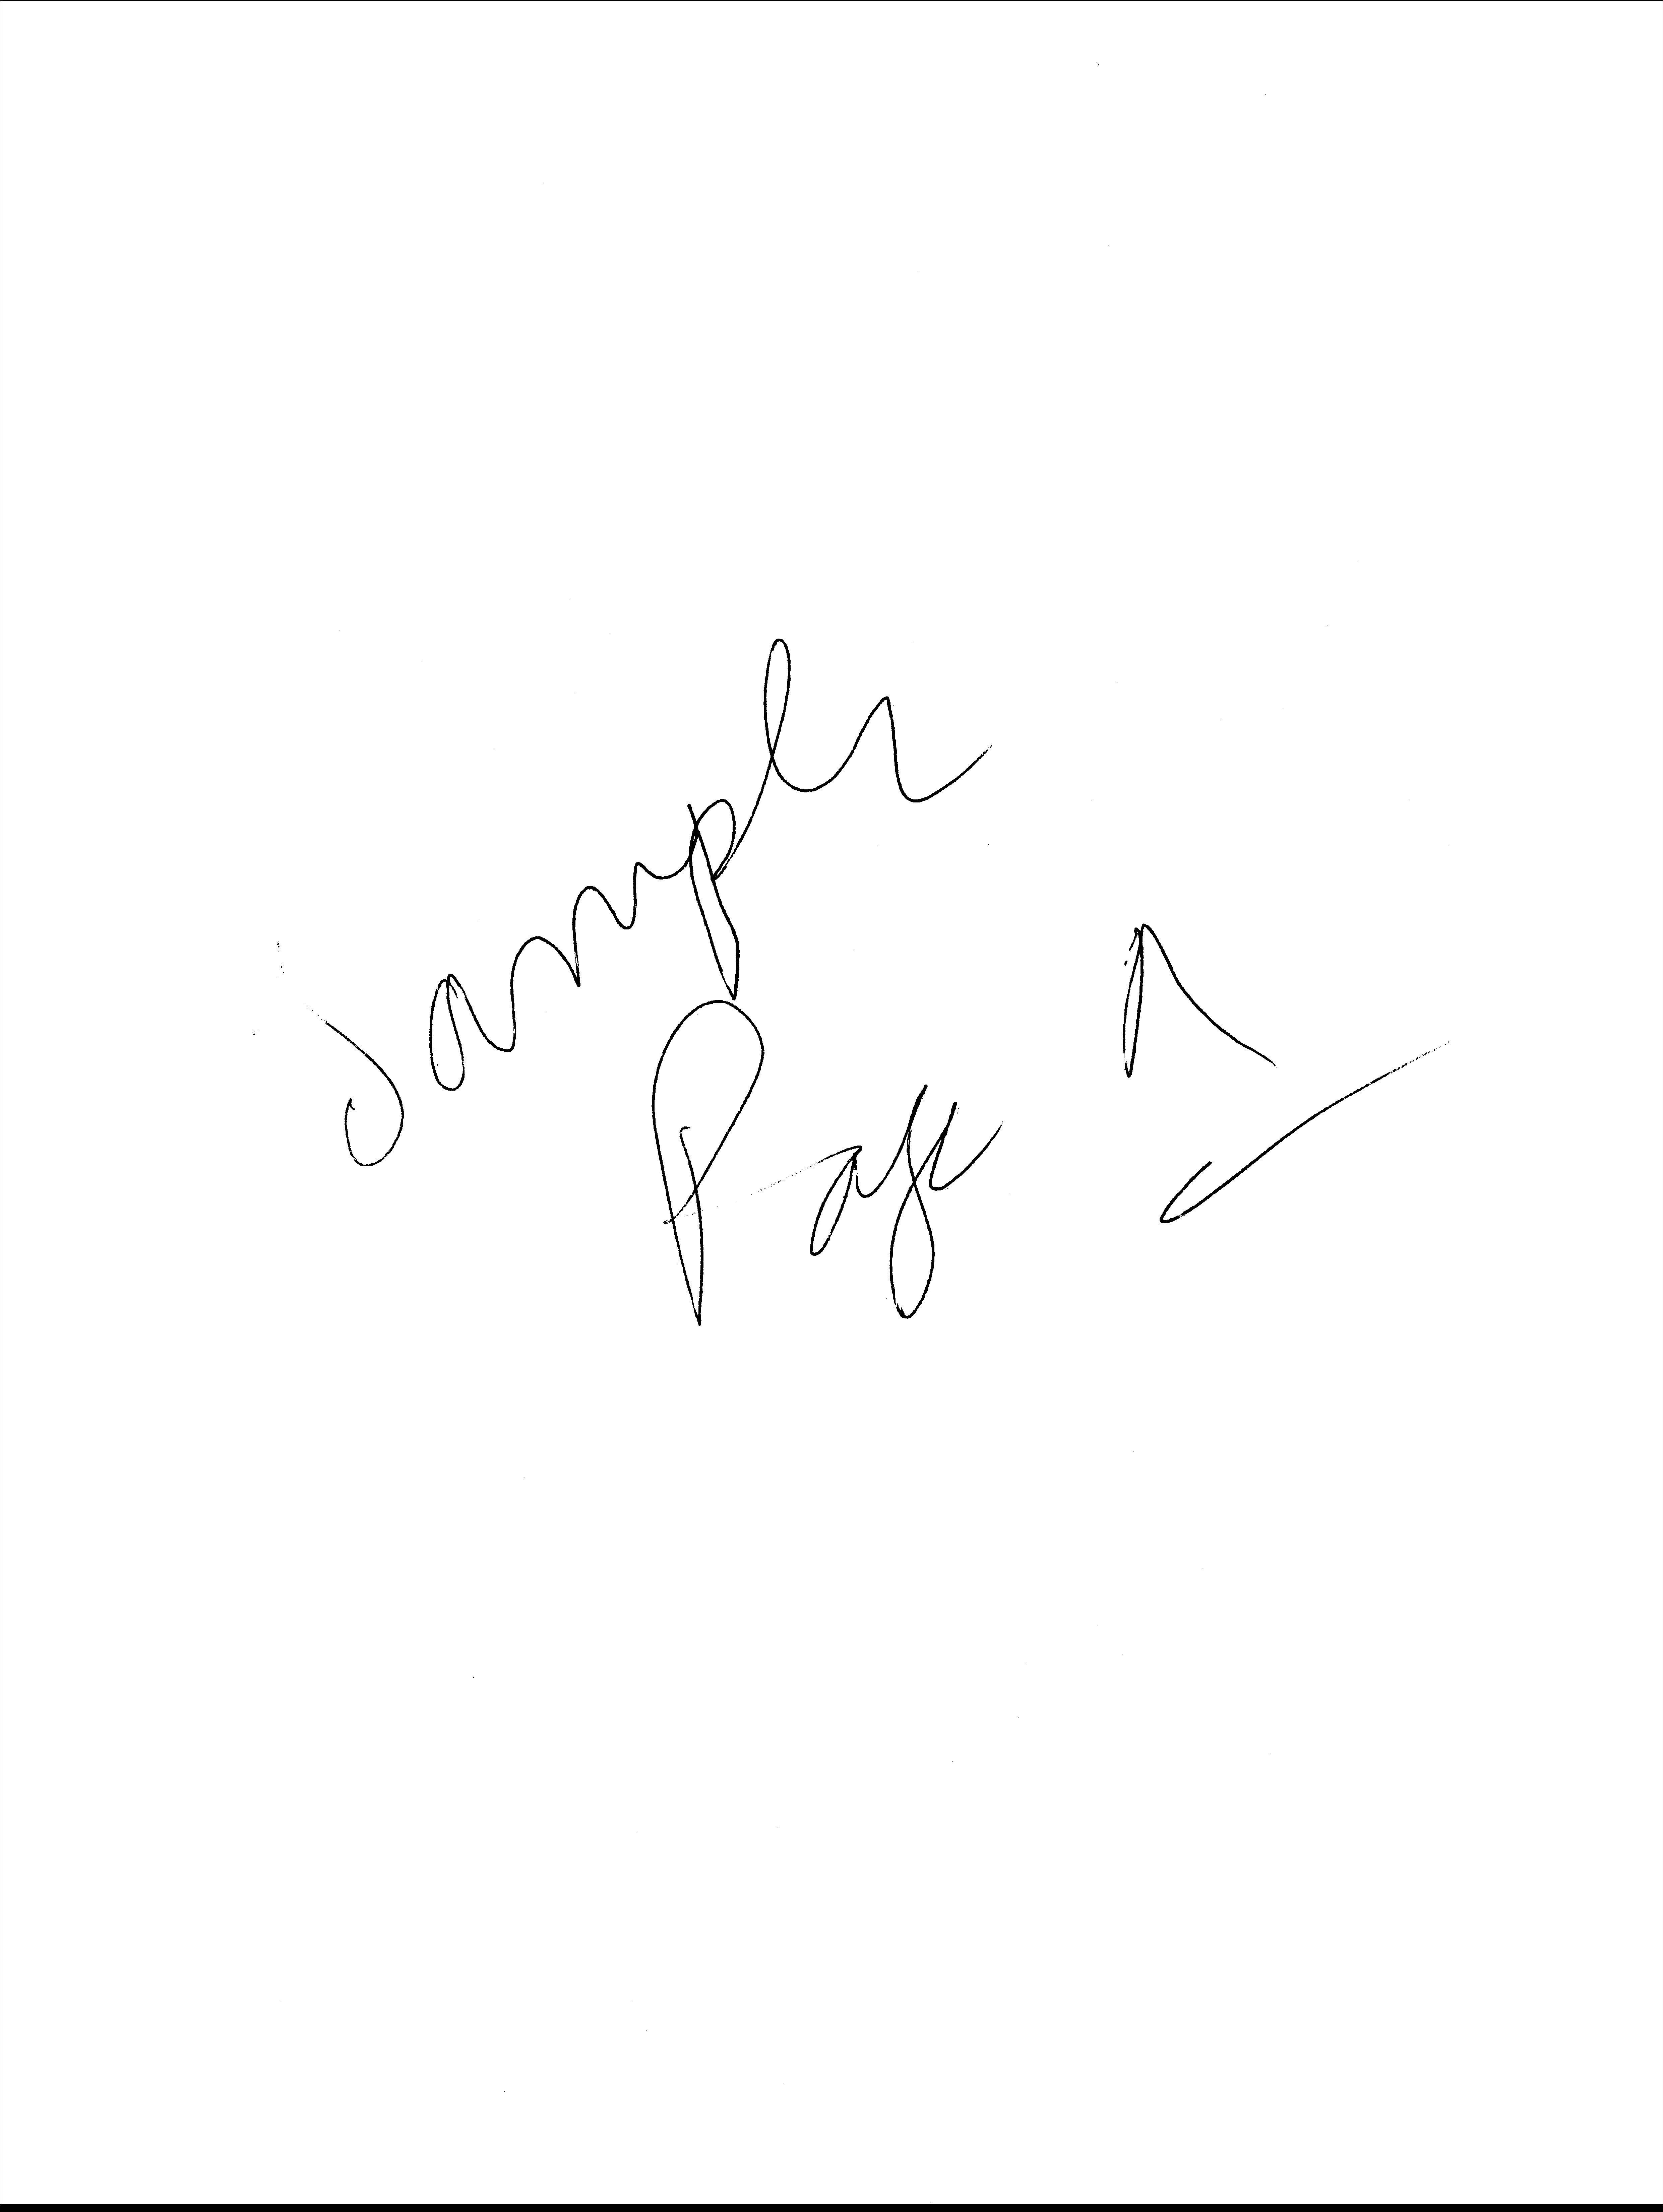 Sample
Page